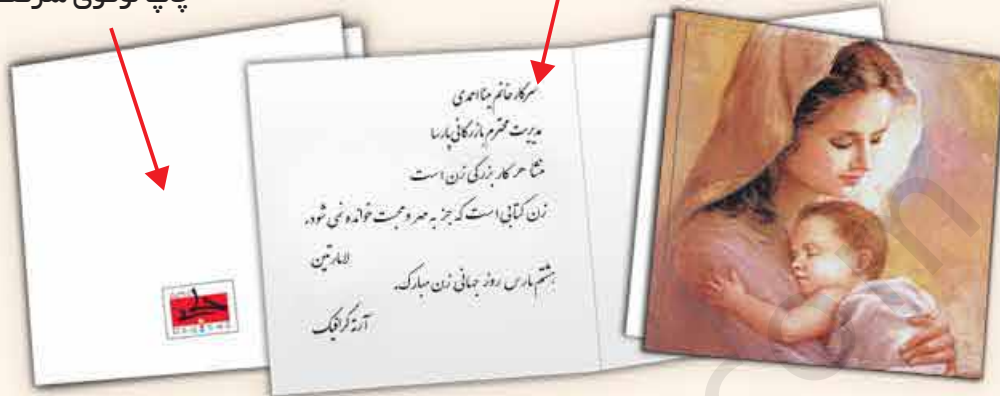 چاپ لوگوی
سرکار خانم مینا احمدی
مدیریت محترم بازرگانی پارسا
منشا هر کار بزرگی زن است
زن کتابی است که جز به مهر و محبت خوانده نمی شود.
لامارتین
هشتم مارس روز جهانی زن مبارک.
آرنه گرافیک